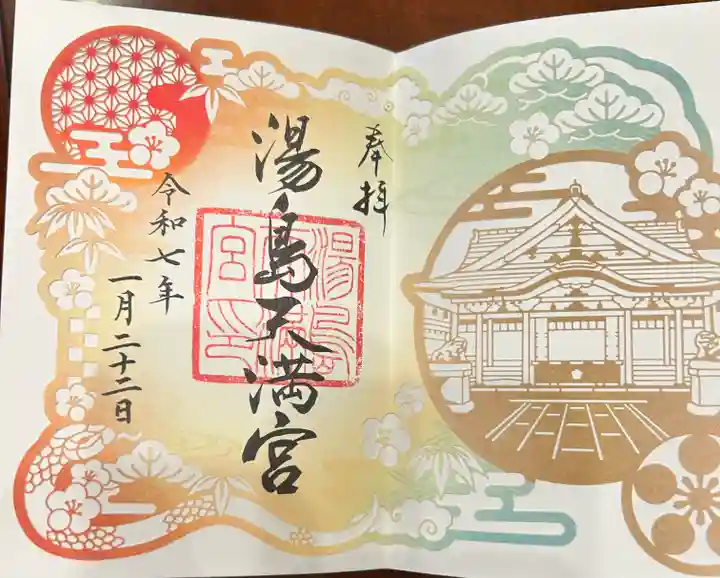 奉拝
湯島天満宮
令和七年
一月二十二日